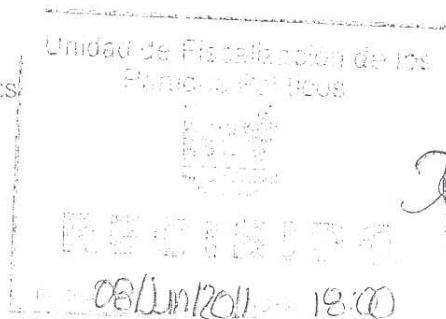 Unidad de Fiscalización de los
Partidos Políticos
RECIBIDO
08/Jun/2011 18:00